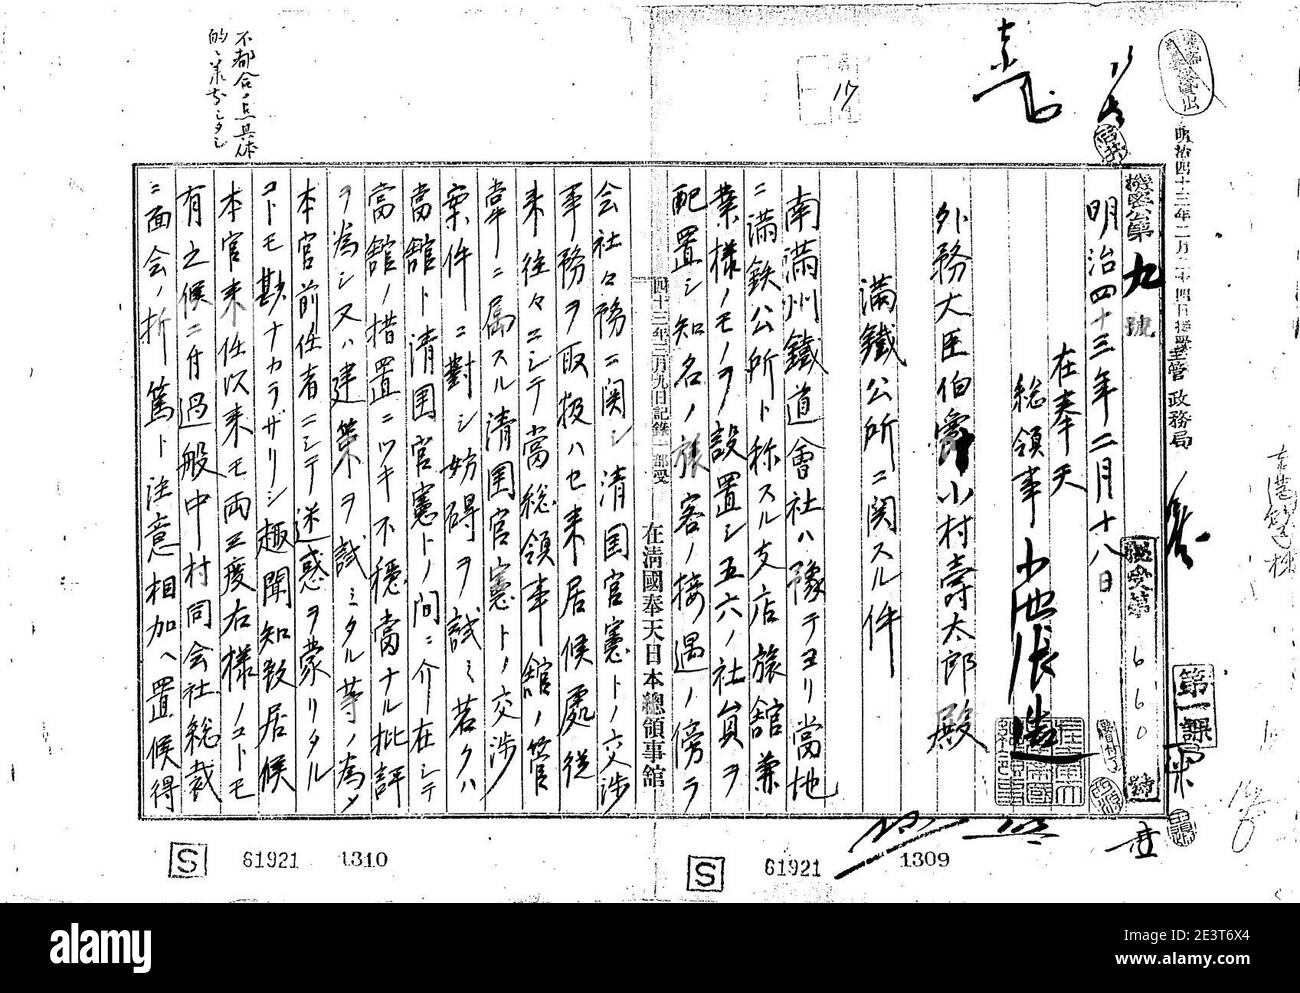 明治四十三年二月二十四日接受
主管 政務局
機密公第九號
明治四十三年二月十八日
在奉天
総領事 小池張造
外務大臣伯爵小村壽太郎殿
満鐵公所ニ関スル件
南満州鐵道會社ハ豫テヨリ當地
ニ満鉄公所ト称スル支店旅舘兼
業様ノモノヲ設置シ五六ノ社員ヲ
配置シ知名ノ旅客ノ接遇ノ傍ラ
四十三年三月九日記録
在淸國奉天日本總領事館
会社々務ニ関シ清国官憲トノ交渉
事務ヲ取扱ハセ来居候處従
来往々ニシテ當総領事舘ノ管
掌ニ属スル清国官憲トノ交渉
案件ニ對シ妨碍ヲ試ミ若クハ
當舘ト清国官憲トノ間ニ介在シテ
當舘ノ措置ニツキ不穏當ナル批評
ヲ為シ又ハ建策ヲ試ミタル等ノ為メ
本官前任者ニシテ迷惑ヲ蒙リタル
コトモ尠ナカラザリシ趣聞知致居候
本官来任以来モ両三度右様ノコトモ
有之候ニ付過般中村同会社総裁
ニ面会ノ折篤ト注意相加ヘ置候得
不都合ノ点具体
的ニ
17
660
第一課
S 61921 1310
S 61921 1309
alamy
Image ID: 2E3T6X4
www.alamy.com